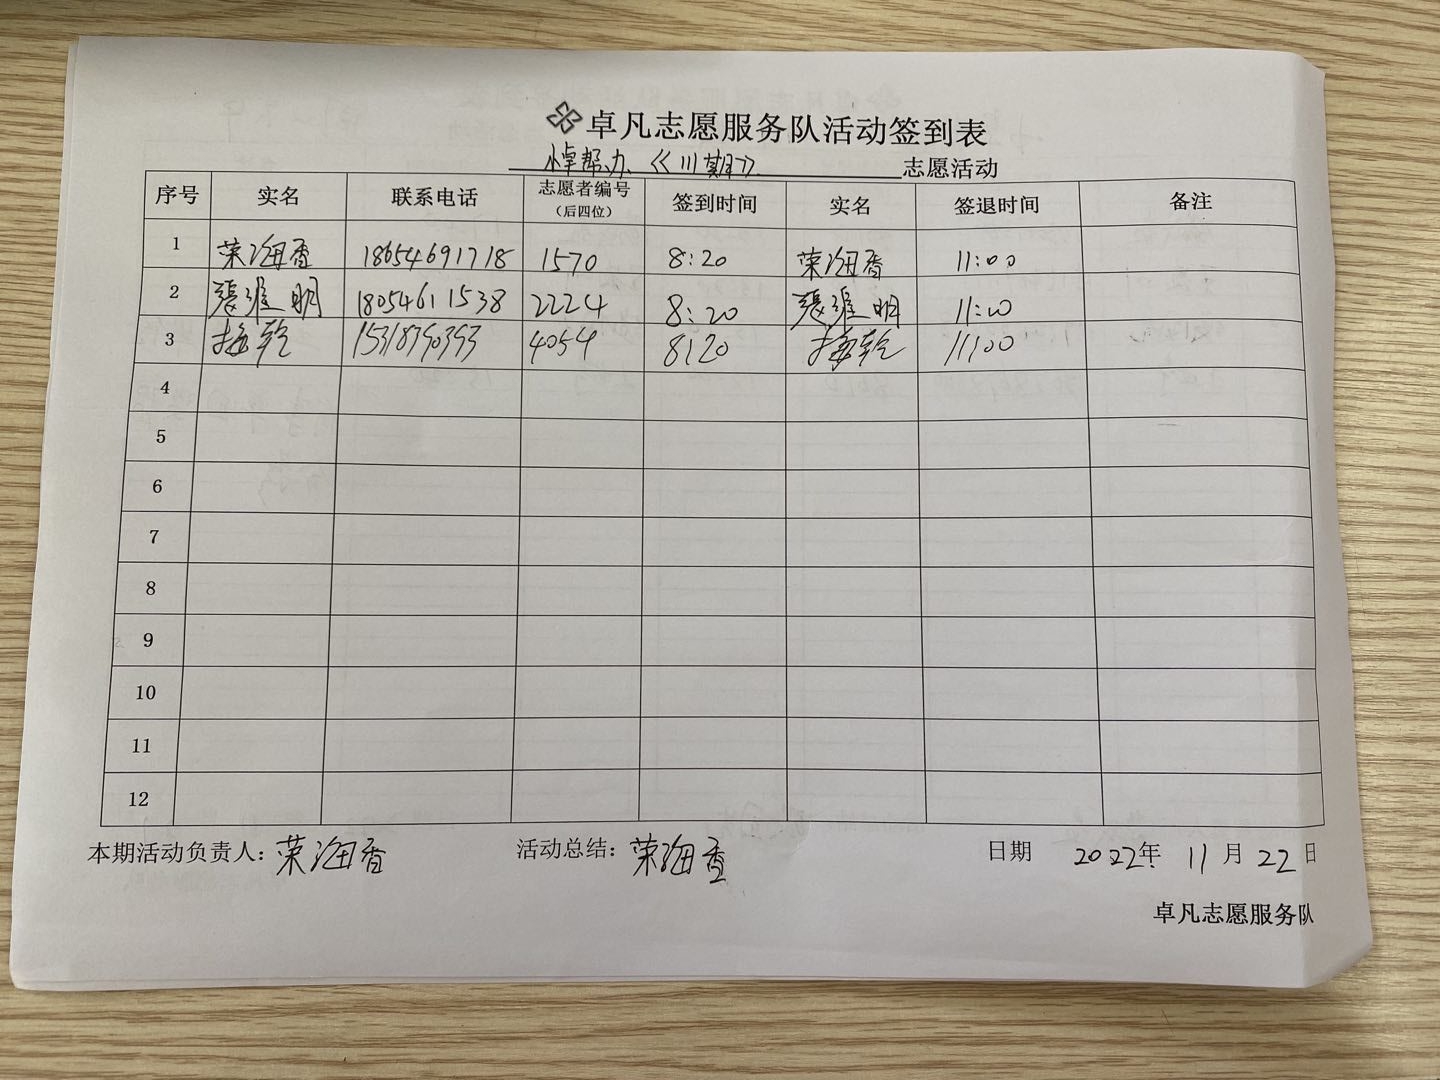 卓凡志愿服务队活动签到表
小卓帮办《川期》 志愿活动
序号 实名 联系电话 志愿者编号（后四位） 签到时间 实名 签退时间 备注
1 荣海香 18654691718 1570 8:20 荣海香 11:00
2 張維明 18054611538 2224 8:20 張維明 11:00
3 4054 8:20 11:00
4
5
6
7
8
9
10
11
12
本期活动负责人：荣海香 活动总结：荣海香 日期 2022年 11月 22日
卓凡志愿服务队